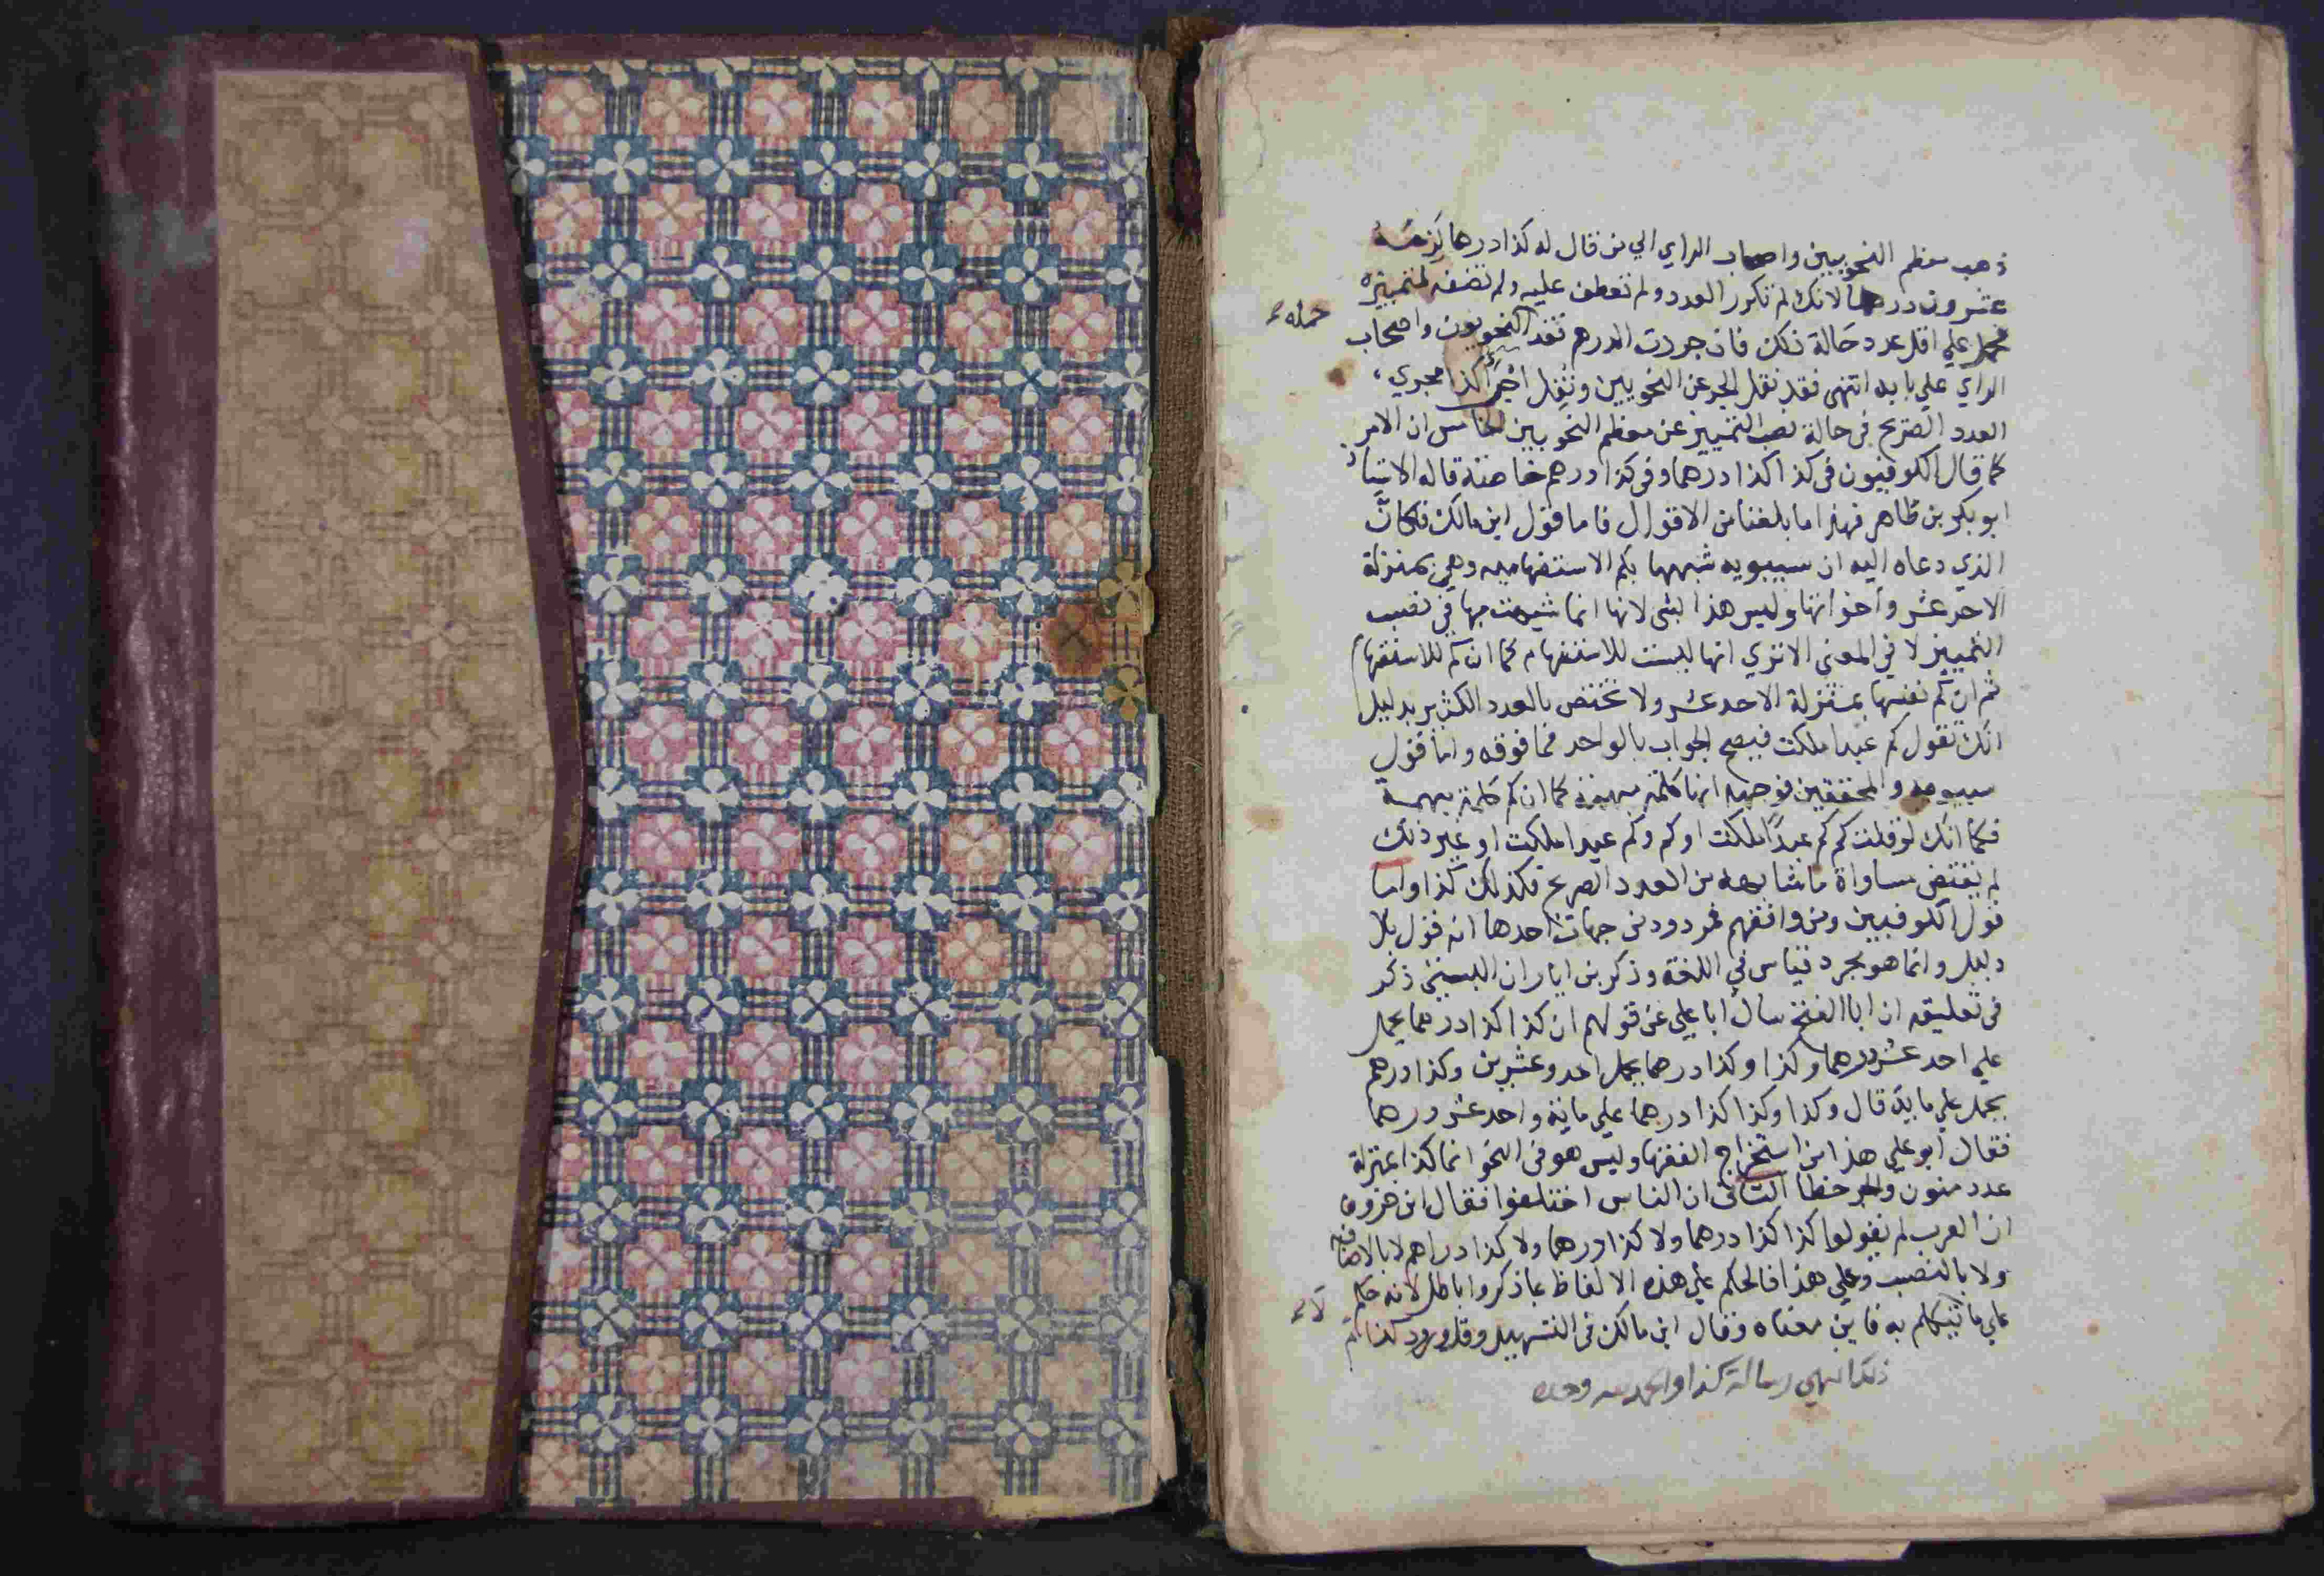 ذهب معظم النحويين واصحاب الراي الي من قال له كذا درهما لزمه
عشرون درهما لانك لم تكرر العدد ولم تعطف عليه ولم تضفه لتمييزه
حمله
فحمل علي اقل عدد حالة ذلك فان جررت الدرهم فقد النحويون واصحاب
الراي علي بابه انتهى فقد نقل الجر عن النحويين ونقل اجراء كذا مجري
العدد الصريح في حالة نصب التمييز عن معظم النحويين الخامس ان الامر
كما قال الكوفيون في كذا كذا درهما وفي كذا درهم خاصة قاله الاستاذ
ابو بكر بن طاهر فهذا ما بلغنا من الاقوال فاما قول ابن مالك فكان
الذي دعاه اليه ان سيبويه شبهها بكم الاستفهاميه وهي بمنزلة
الاحد عشر واخواتها وليس هذا بشي لانها انما شبهت بها في نصب
التمييز لا في المعنى الا تري انها ليست للاستفهام كما ان كم للاستفهام
ثم ان كم نفسها بمنزلة الاحد عشر ولا تختص بالعدد الكثير بدليل
انك تقول كم عبدا ملكت فيصح الجواب بالواحد فما فوقه واما قول
سيبويه والمحققين فوجهه انها كلمة مبهمة كما ان كم كلمة مبهمة
فكما انك لو قلت كم كم عبدا ملكت او كم وكم عبدا ملكت او غير ذلك
لم يقتض مساواة ما شابهه من العدد الصريح فكذلك كذا واما
قول الكوفيين ومن وافقهم فمردود من جهات احدها انه قول بلا
دليل وانما هو مجرد قياس في اللغة وذكر بن اياز ان البستي ذكر
في تعليقه ان ابا الفتح سال ابا علي عن قولهم ان كذا كذا درهما يحمل
علي احد عشر درهما وكذا وكذا درهما يحمل احد وعشرين وكذا درهم
يحمل علي ماية قال وكذا وكذا كذا درهما علي ماية واحد عشر درهما
فقال ابو علي هذا من استخراج الفقها وليس هو في النحو انما كذا بمنزلة
عدد منون والجر خطا الثاني ان الناس اختلفوا فقال ابن خروف
ان العرب لم يقولوا كذا كذا درهما ولا كذا درهما ولا كذا دراهم لا بالاضافه
ولا بالنصب وعلي هذا فالحكم علي هذه الالفاظ بما ذكروا باطل لانه حكم
لا
علي ما يتكلم به فاين معناه وقال ابن مالك في التسهيل وقل ورود كذا
ذلك انتهي رسالة كذا والحمد لله وحده